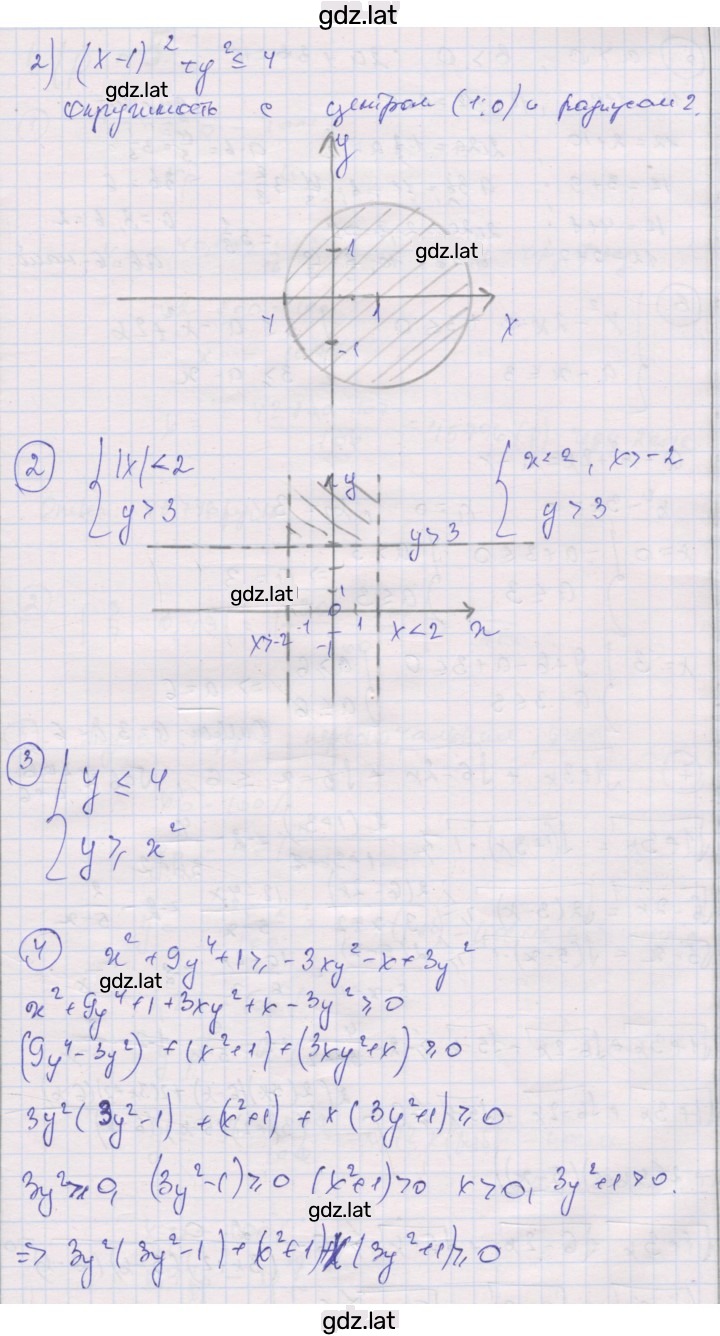 gdz.lat
2) (x-1)² + y² ≤ 4
gdz.lat
окружность с центром (1;0) и радиусом 2.
y
1
gdz.lat
-1 1 x
-1
2 { |x| < 2
y > 3
y
{ x < 2, x > -2
y > 3
y > 3
gdz.lat
1
0
x > -2 -1 1 x < 2 x
-1
3 { y ≤ 4
y ≥ x²
4 x² + 9y⁴ + 1 ≥ -3xy² - x + 3y²
gdz.lat
x² + 9y⁴ + 1 + 3xy² + x - 3y² ≥ 0
(9y⁴ - 3y²) + (x² + 1) + (3xy² + x) ≥ 0
3y² (3y² - 1) + (x² + 1) + x (3y² + 1) ≥ 0
3y² ≥ 0, (3y² - 1) ≥ 0 (x² + 1) > 0 x > 0, 3y² + 1 > 0.
gdz.lat
=> 3y² (3y² - 1) + (x² + 1) + x (3y² + 1) ≥ 0
gdz.lat